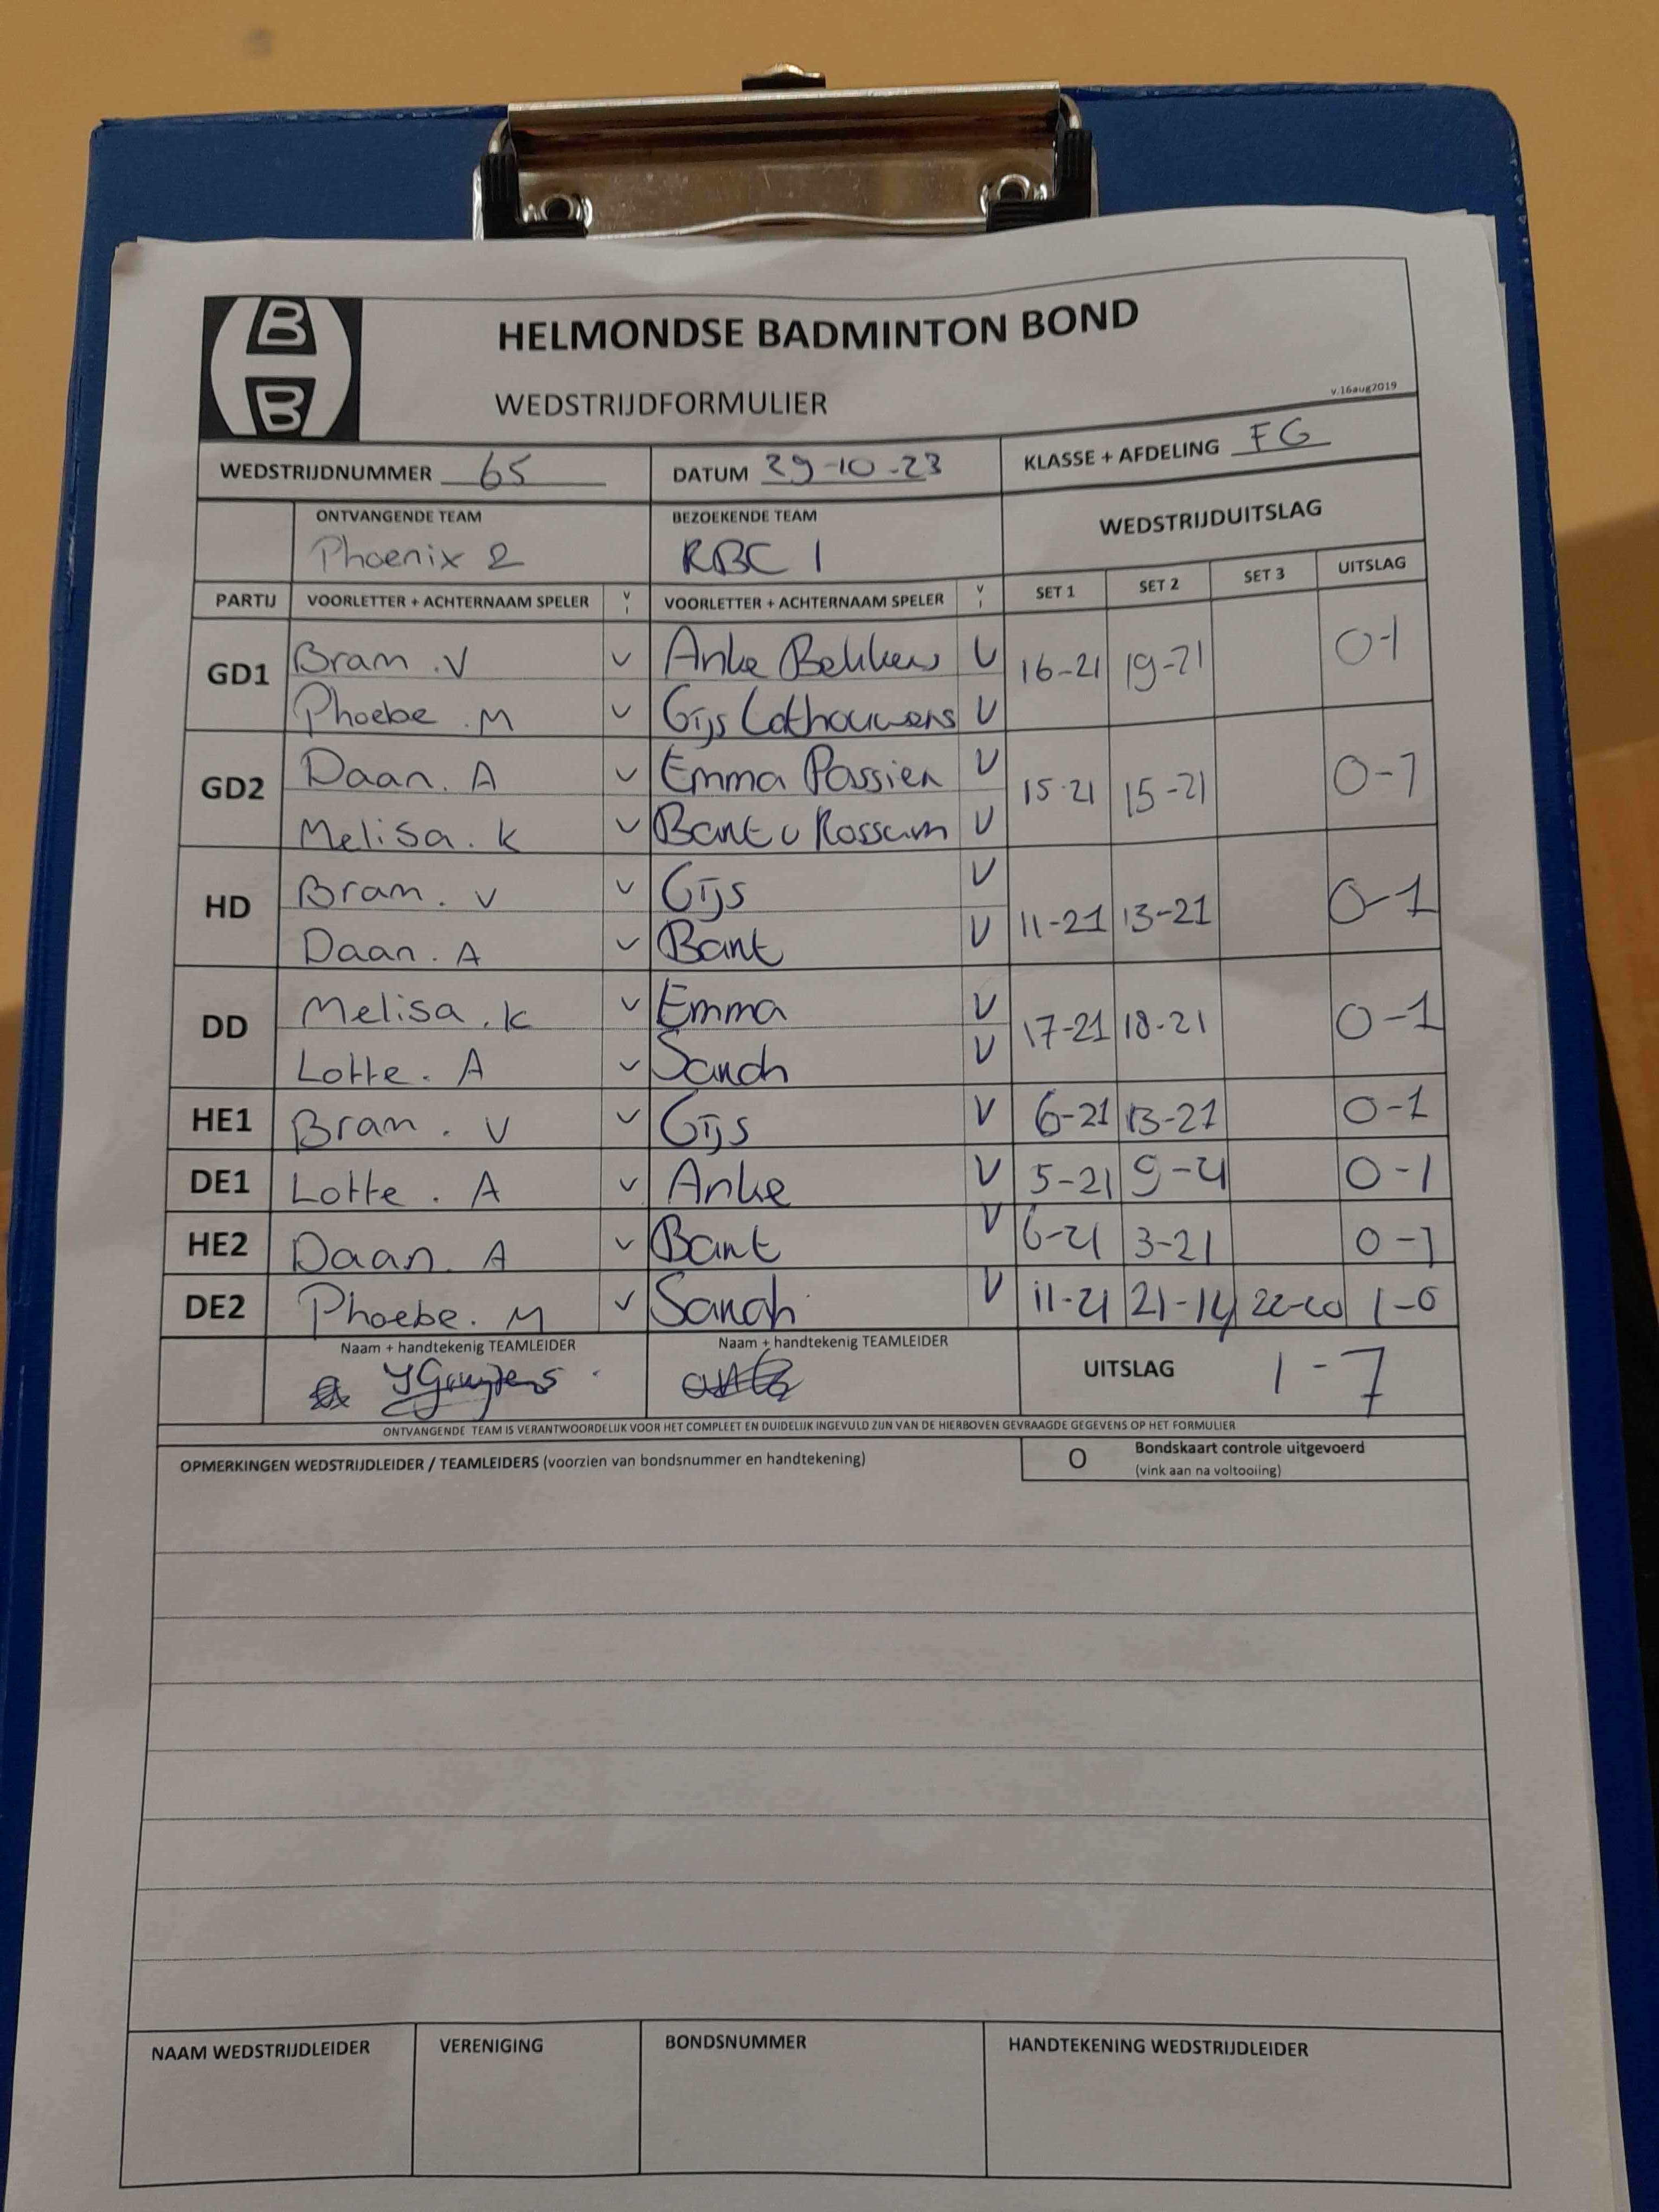 B
B
HELMONDSE BADMINTON BOND
WEDSTRIJDFORMULIER
v.16aug2019
WEDSTRIJDNUMMER 65 DATUM 29-10-23 KLASSE + AFDELING FG
ONTVANGENDE TEAM BEZOEKENDE TEAM WEDSTRIJDUITSLAG
Phoenix 2 RBC 1
PARTIJ VOORLETTER + ACHTERNAAM SPELER V VOORLETTER + ACHTERNAAM SPELER V SET 1 SET 2 SET 3 UITSLAG
GD1 Bram . V v Anke Bekkers V 16-21 19-21 0-1
Phoebe . M v Gijs Lathouwers V
GD2 Daan. A v Emma Passier V 15-21 15-21 0-1
Melisa. K v Bart v Rossum V
HD Bram. V v Gijs V 11-21 13-21 0-1
Daan. A v Bart V
DD Melisa .K v Emma V 17-21 18-21 0-1
Lotte. A v Sarah V
HE1 Bram . V v Gijs V 6-21 13-21 0-1
DE1 Lotte . A v Anke V 5-21 9-21 0-1
HE2 Daan. A v Bart V 6-21 3-21 0-1
DE2 Phoebe. M v Sarah V 11-21 21-14 22-20 1-0
Naam + handtekenig TEAMLEIDER Naam + handtekenig TEAMLEIDER UITSLAG 1-7
ONTVANGENDE TEAM IS VERANTWOORDELIJK VOOR HET COMPLEET EN DUIDELIJK INGEVULD ZIJN VAN DE HIERBOVEN GEVRAAGDE GEGEVENS OP HET FORMULIER
OPMERKINGEN WEDSTRIJDLEIDER / TEAMLEIDERS (voorzien van bondsnummer en handtekening) O Bondskaart controle uitgevoerd
(vink aan na voltooiing)
NAAM WEDSTRIJDLEIDER VERENIGING BONDSNUMMER HANDTEKENING WEDSTRIJDLEIDER